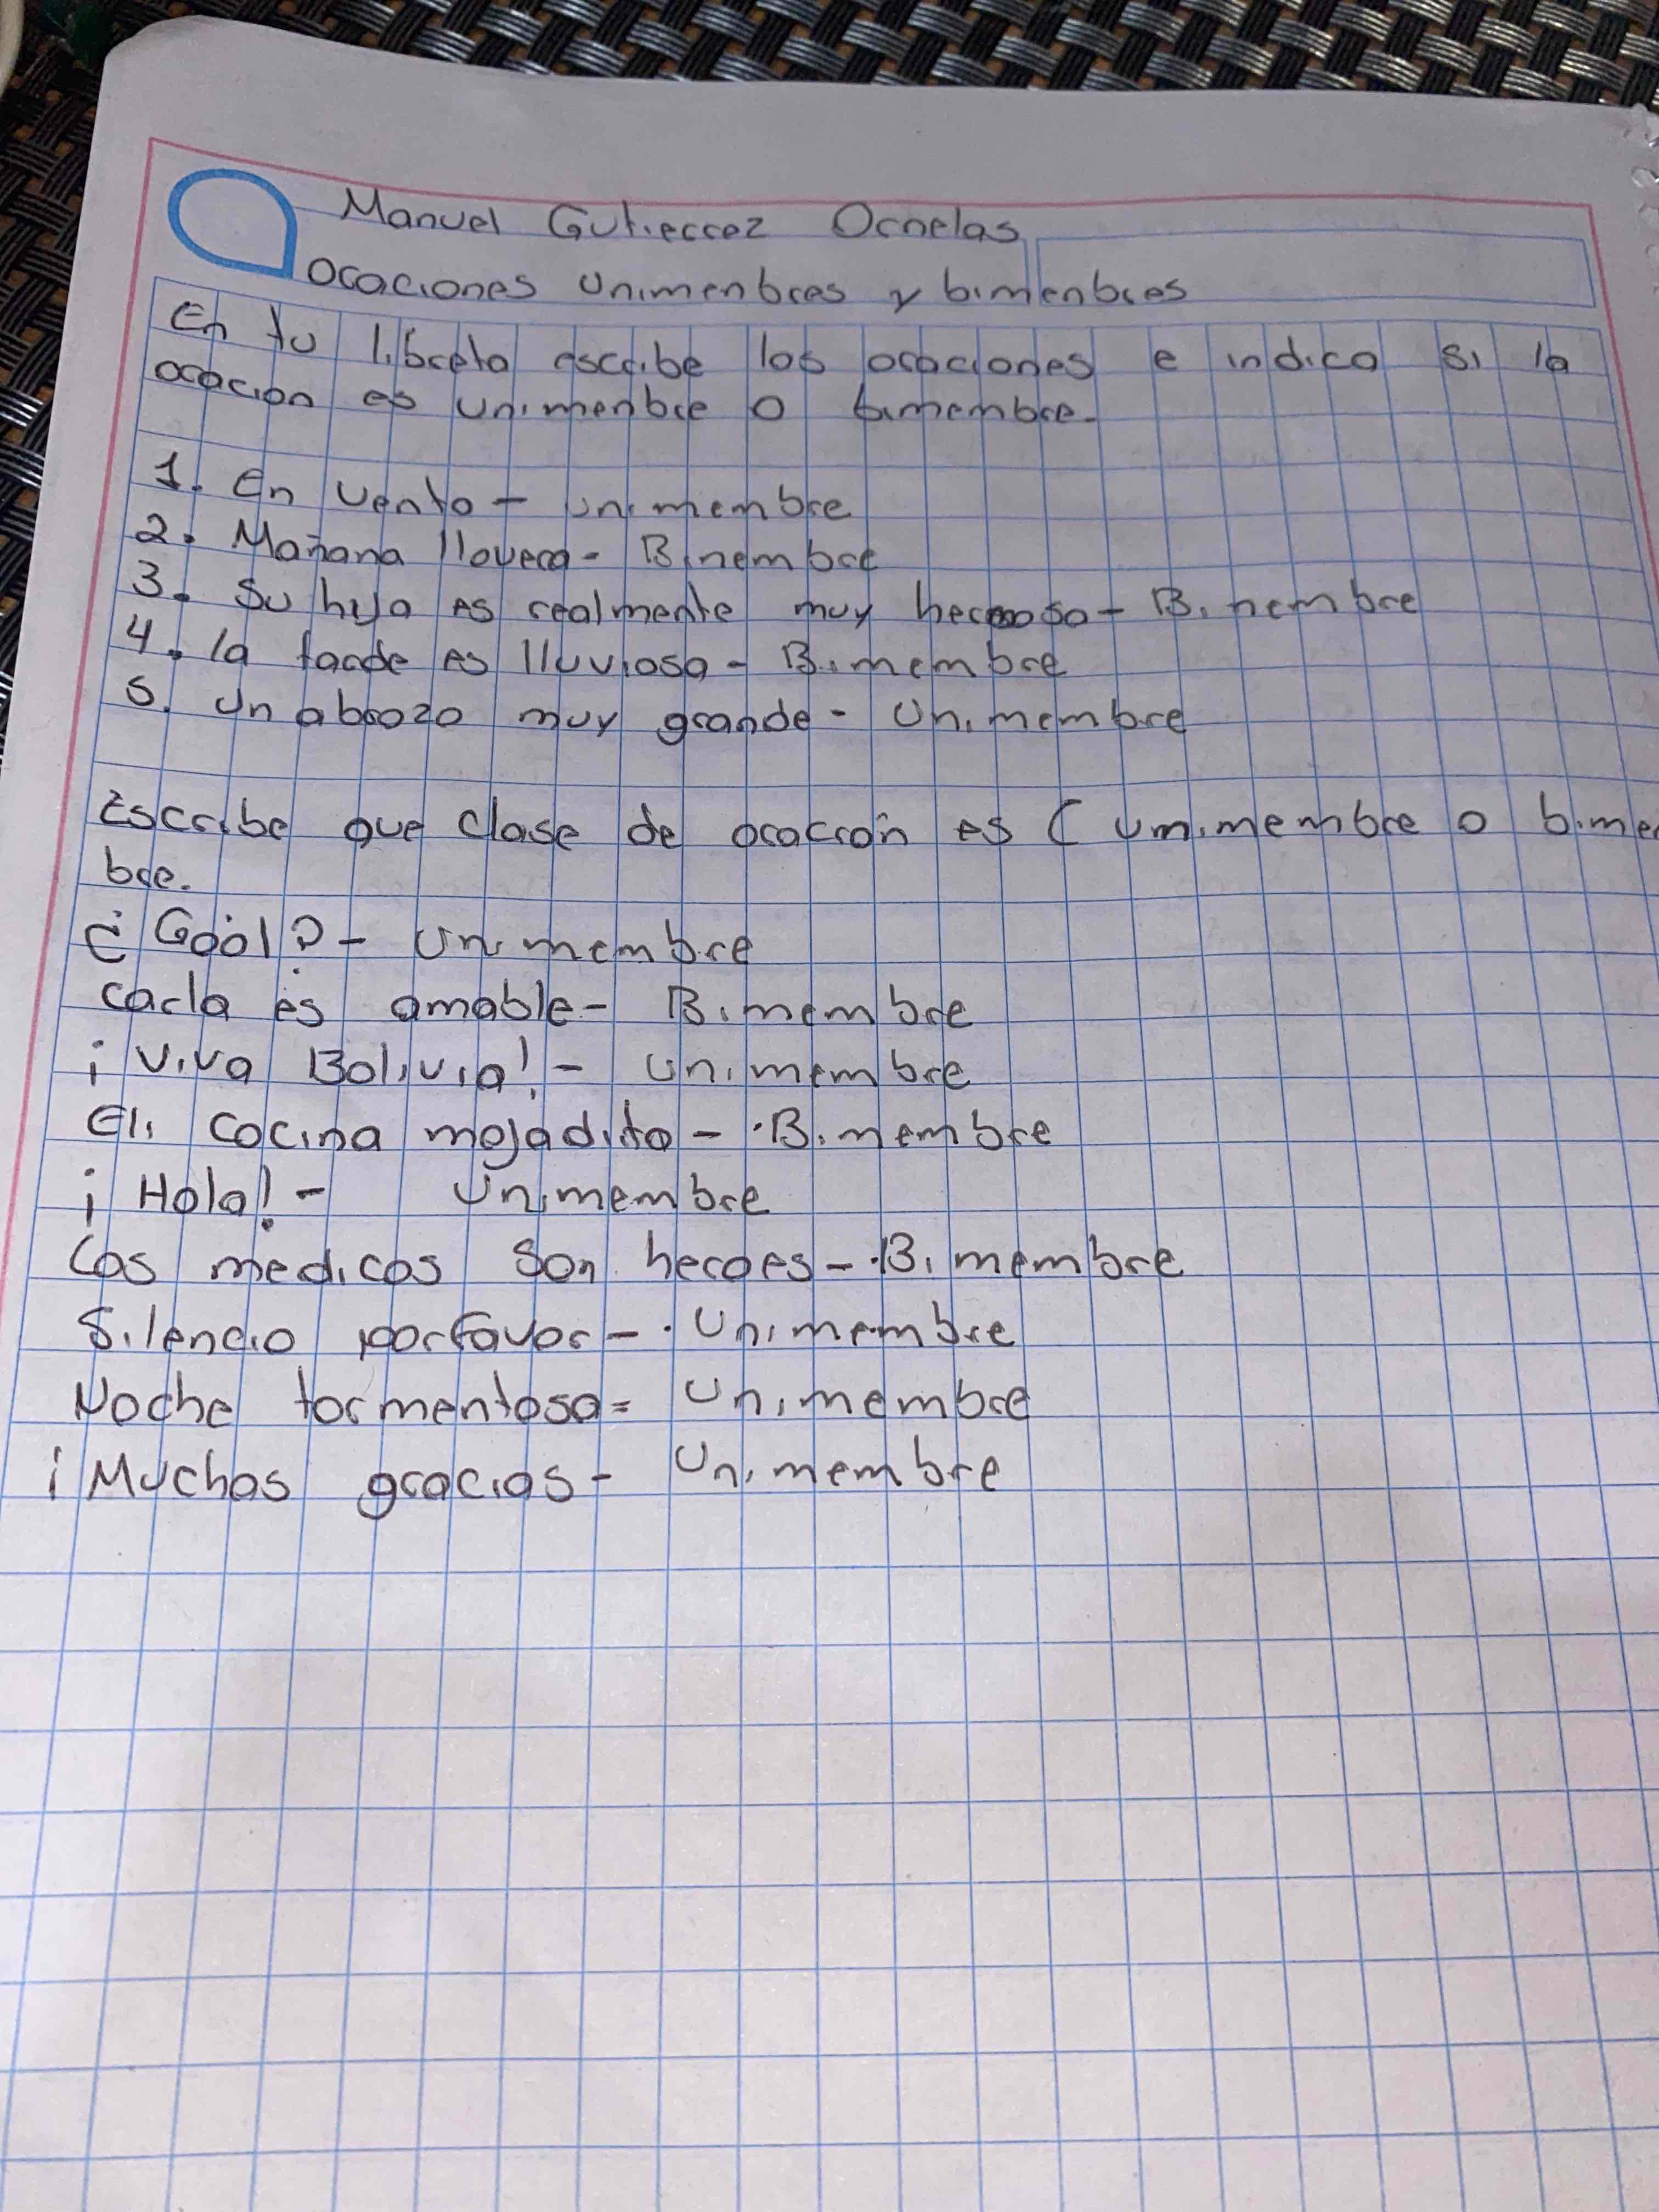 Manuel Gutierrez Ornelas
oraciones unimenbres y bimenbres
En tu libreta escribe las oraciones e indica si la
oracion es unimenbre o bimembre.
1. En venta - unimembre
2. Mañana llovera - Binembre
3. Su hija es realmente muy hermosa - Binembre
4. la tarde es lluviosa - Bimembre
5. Un abrazo muy grande - Unimembre
Escribe que clase de oración es ( unimembre o bimem
bre.
¿Gool? - unimembre
carla es amable - Bimembre
¡Viva Bolivia! - unimembre
Eli cocina mojadito - Binembre
¡Hola! - Unimembre
Los medicos son heroes - Bimembre
Silencio porfavor - Unimembre
Noche tormentosa = Unimembre
¡Muchas gracias - Unimembre